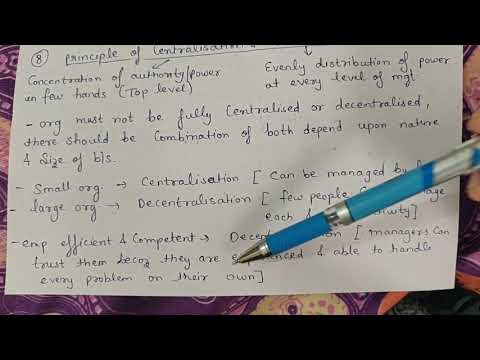 ⑧ principle of Centralisation
Concentration of authority/power
in few hands (Top level)
Evenly distribution of power
at every level of mgt
- org must not be fully Centralised or decentralised,
there should be Combination of both depend upon nature
& Size of b/s.
- Small org → Centralisation [ Can be managed by
- large org → Decentralisation [ few people
each &
- emp efficient & Competent → [ managers Can
trust them they are & able to handle
every problem on their own]